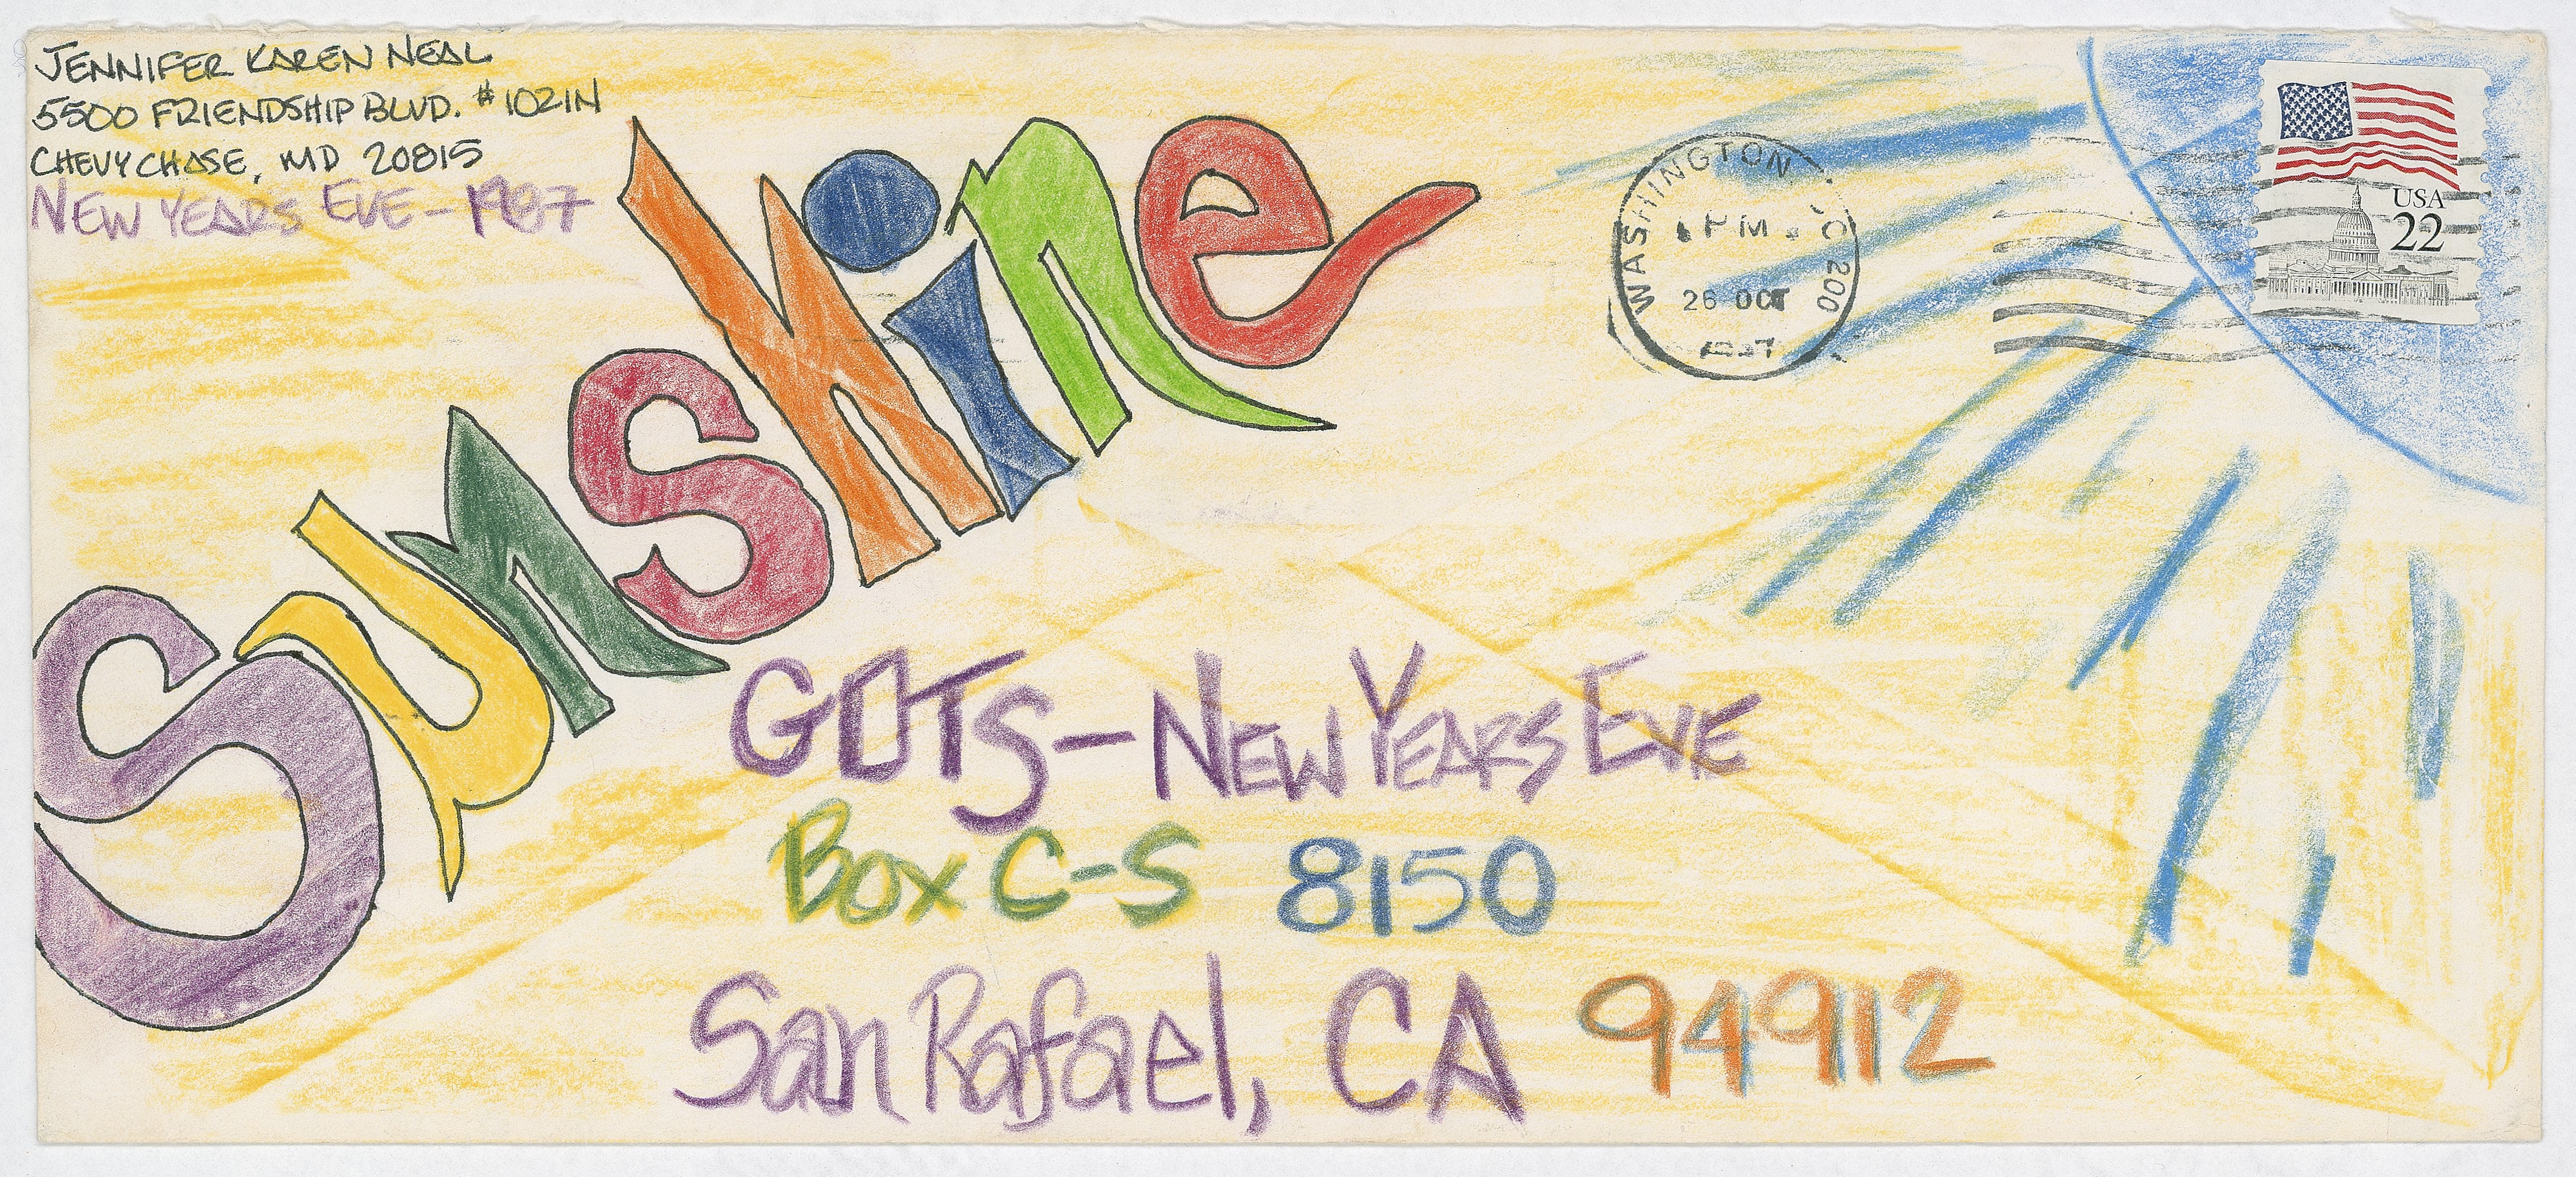 JENNIFER KAREN NEAL
5500 FRIENDSHIP BLVD. #1021N
CHEVY CHASE, MD 20815
NEW YEARS EVE - 1987
Sunshine
WASHINGTON
PM
26 OCT
200
USA
22
GDTS - NEW YEARS EVE
Box C-S 8150
San Rafael, CA 94912